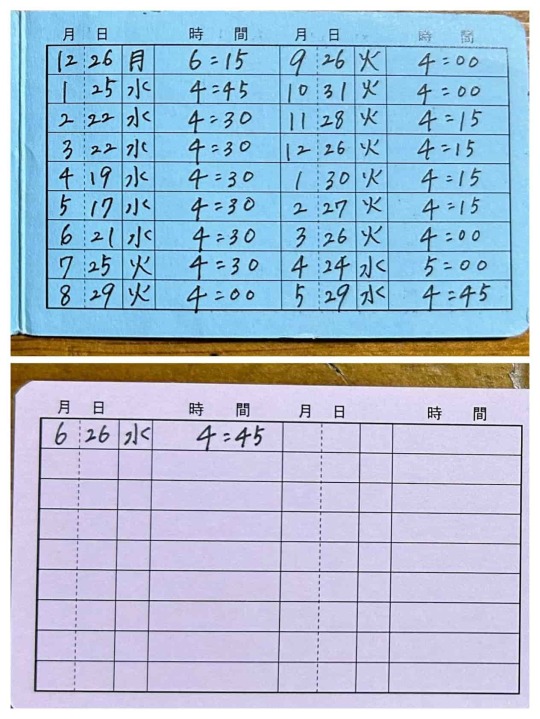 月 日 時 間 月 日 時 間
12 26 月 6:15 9 26 火 4:00
1 25 水 4:45 10 31 火 4:00
2 22 水 4:30 11 28 火 4:15
3 22 水 4:30 12 26 火 4:15
4 19 水 4:30 1 30 火 4:15
5 17 水 4:30 2 27 火 4:15
6 21 水 4:30 3 26 火 4:00
7 25 火 4:30 4 24 水 5:00
8 29 火 4:00 5 29 水 4:45
月 日 時 間 月 日 時 間
6 26 水 4:45